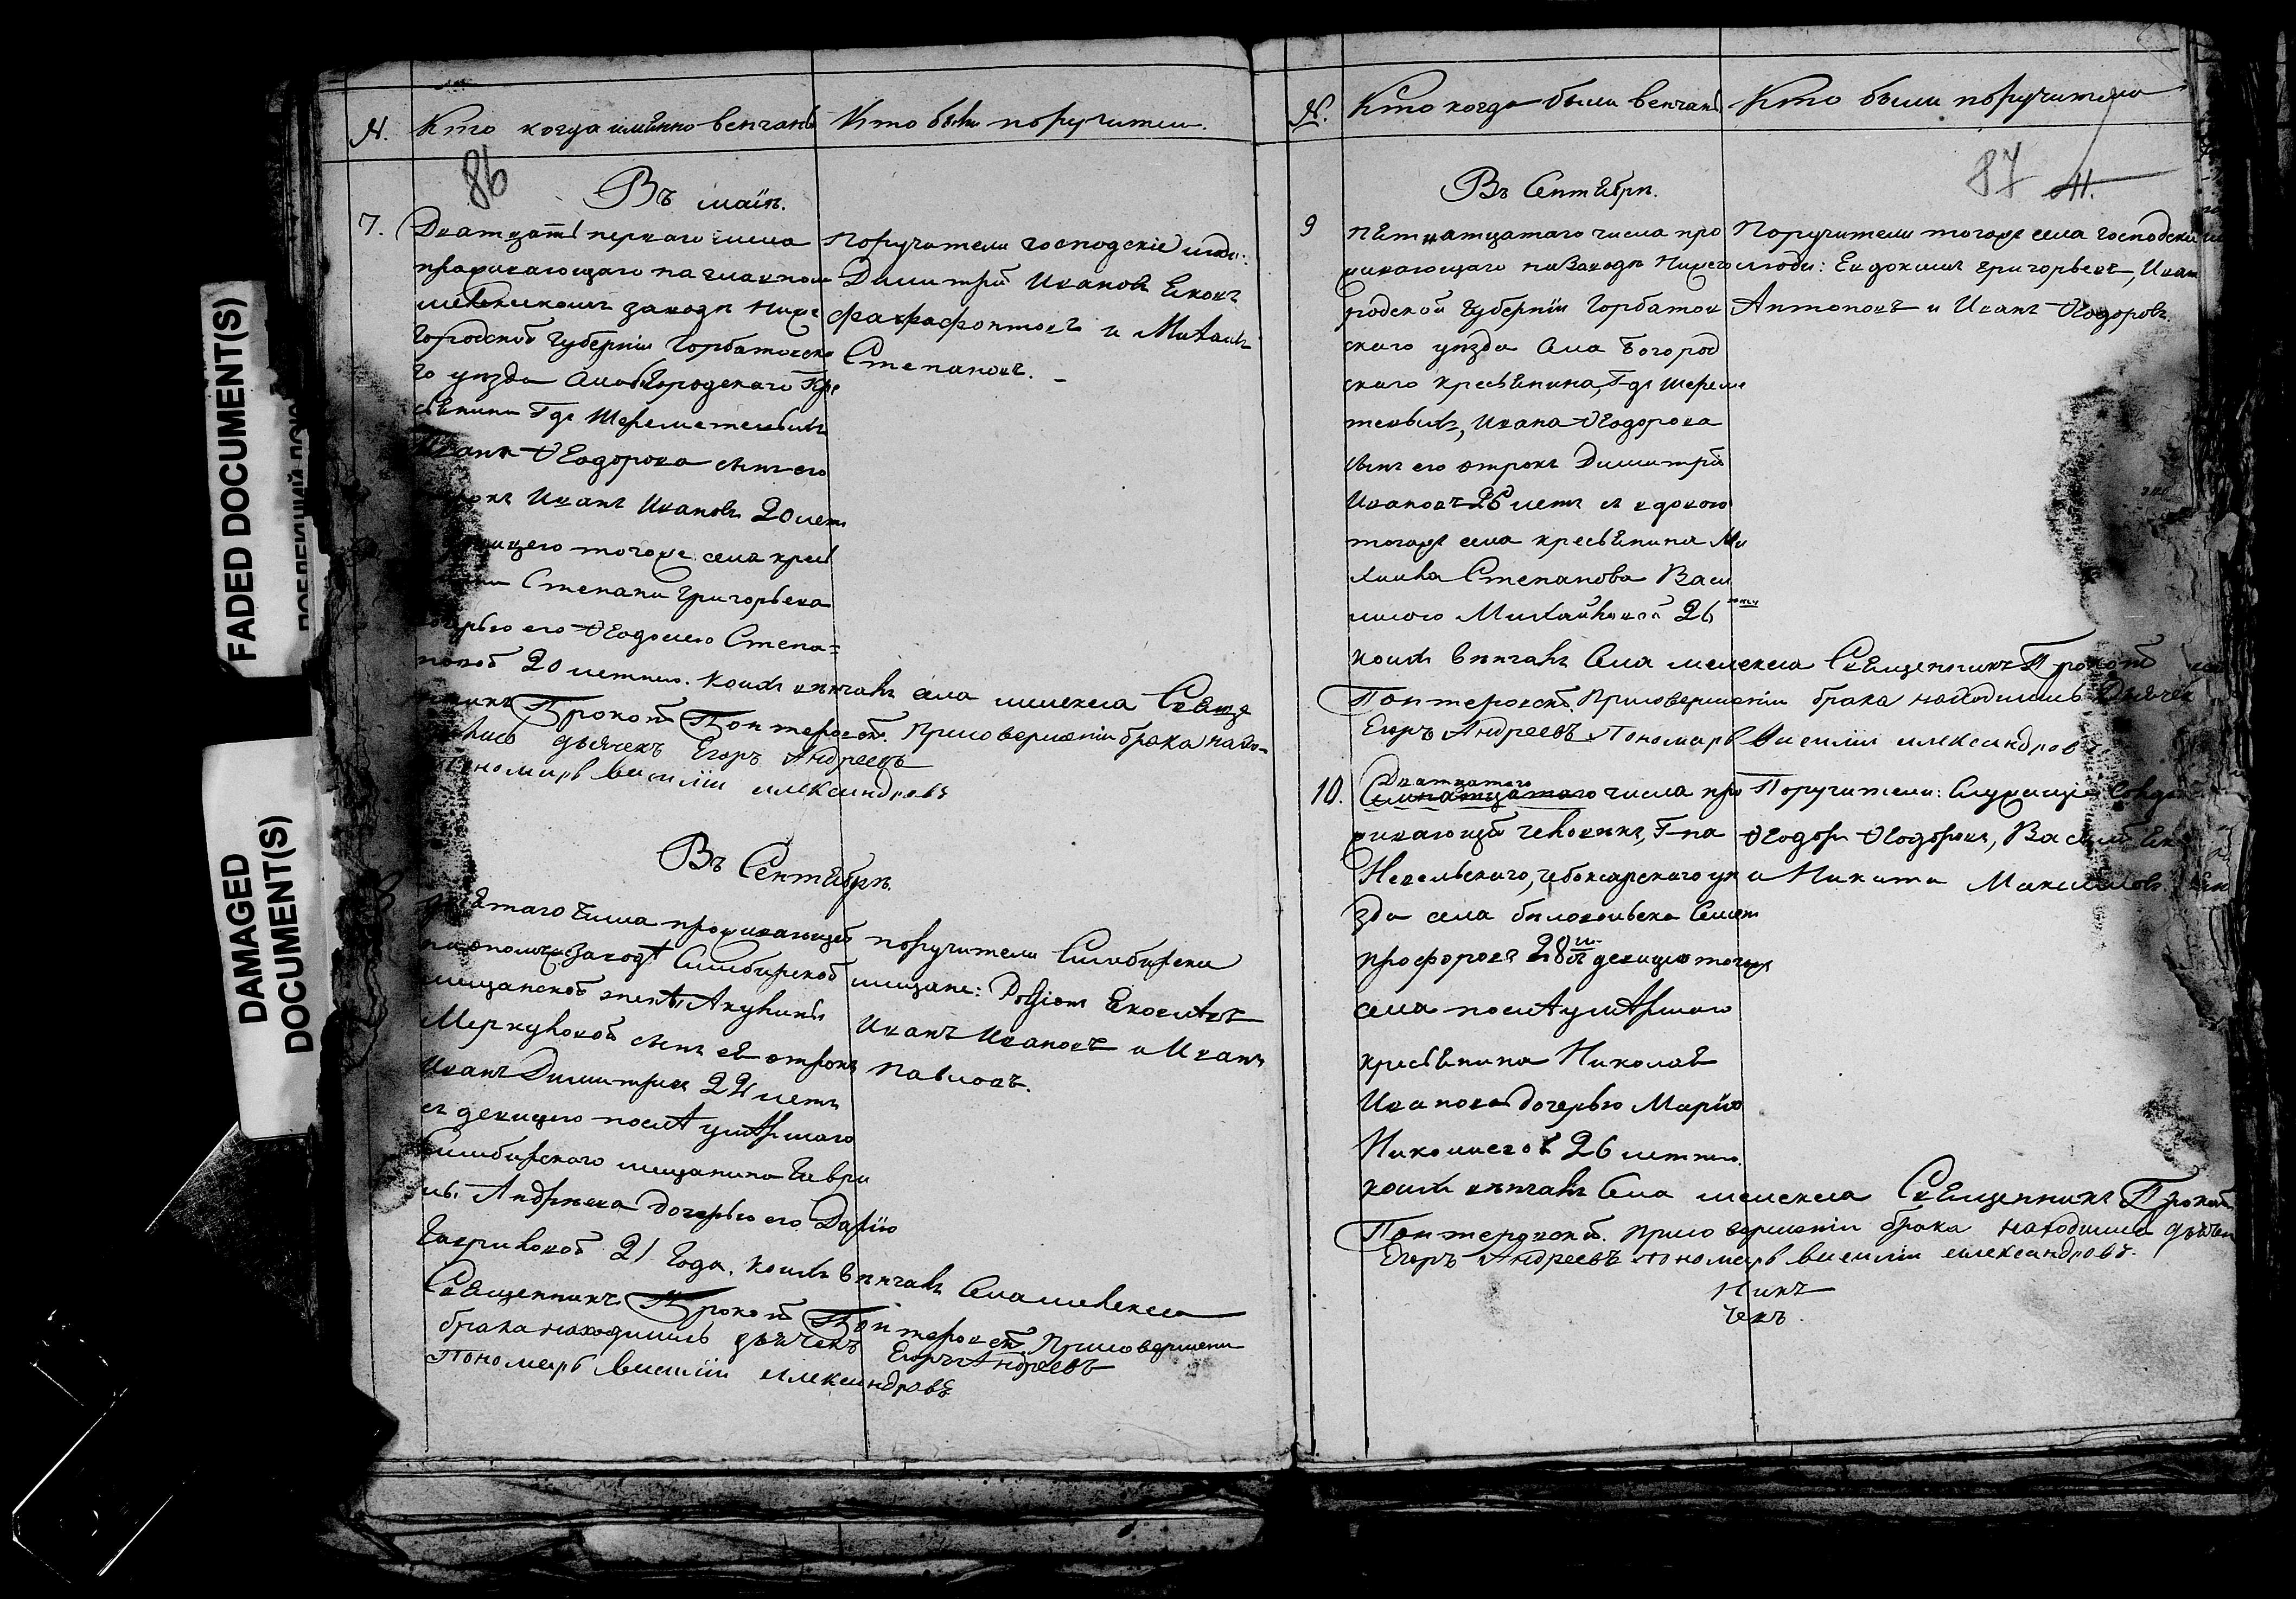 FADED DOCUMENT(S)
DAMAGED
DOCUMENT(S)
№. Кто когда имѣнно венчаны Кто были поручители.
86
Въ маiѣ.
7. Дватцать перваго числа
проживающаго на
заводѣ Ниже
городской Губернiи Горбатовска
го уѣзда Села Богородскаго Кре
стьянина Г-дъ Шереметевыхъ
Ивана Ѳеодорова сынъ его
отрокъ Иванъ Ивановъ 20 летъ
тогоже села кресть
Степана Григорьева
дочерью его Ѳеодосiею Степа=
новой 20 летнею. коихъ вѣнчалъ села мелекеса Свяще
нникъ Прокопiй Понтеровскiй. При совершенiи брака нахо-
дились дьячекъ Егоръ Андреевъ
пономарь василiй александровъ
Поручители господскiе люди:
Димитрiй Ивановъ
и Михаилъ
Степановъ.
Въ Сентябрѣ.
числа проживающей
заводѣ Симбирской
мещанской женки Акулины
Меркуловой сынъ ея отрокъ
Иванъ Димитрiевъ 22 летъ
съ девицею послѣ умѣршаго
Симбирского мещанина Гаври
лы Андрѣева дочерью его Дарiю
Гавриловой 21 Года. коихъ вѣнчалъ Села мелекеса
Священникъ Прокопiй Понтеровскiй. При совершенiи
брака находились дьячекъ Егоръ Андреевъ
Пономарь василiй александровъ
поручители Симбирски
мещане:
Иванъ Ивановъ и Иванъ
Павловъ.
№. Кто когда были венчаны Кто были поручители
87 11.
Въ Сентябрѣ.
9 пятнатцатаго числа про
живающаго на заводѣ Нижего
родской Губернiи Горбатов
скаго уѣзда Села Богород
скаго крестьянина, Г-дъ Шереме
тевыхъ, Ивана Ѳеодорова
сынъ его отрокъ Димитрiй
Ивановъ 26 летъ съ вдовою
тогоже села крестьянина Ми
хаила Степанова Васи
лисою Михайловой 26
коихъ вѣнчалъ Села мелекеса Священникъ Прокопiй
Понтеровскiй. При совершенiи брака находились Дьячекъ
Егоръ Андреевъ Пономарь Василiй александровъ
Поручители тогоже села господскiи
люди: Евдокимъ григорьевъ, Иванъ
Антоновъ и Иванъ Ѳеодоровъ.
Дватцатаго
10. Семнатцатаго числа про
живающiй человѣкъ, Г-на
Невельскаго, чебоксарскаго уѣ
зда села Семенъ
профоровъ 28 девицею тогоже
села послѣ умѣршаго
крестьянина Николая
Иванова дочерью Марiю
Николаевой 26 летнею.
коихъ вѣнчалъ Села мелекеса Священникъ Прокопiй
Понтеровскiй. При совершенiи брака находились дьячекъ
Егоръ Андреевъ пономарь василiй александровъ.
Поручители: Служащiе
Ѳеодоръ Ѳеодоровъ, Василiй
и Никита Максимовъ
никъ
чекъ.